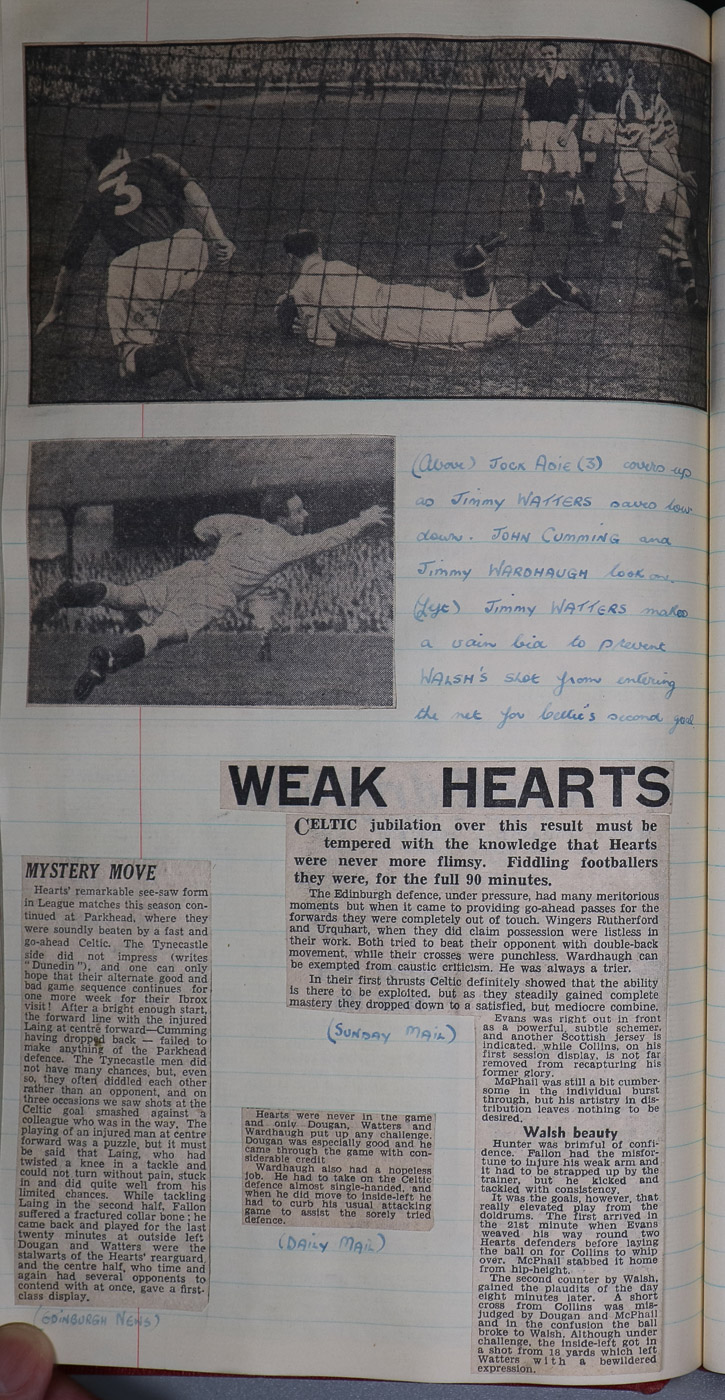 3
(Above) JOCK ADIE (3) covers up
as Jimmy WATTERS saves low
down. JOHN CUMMING and
Jimmy WARDHAUGH look on.
Jimmy WATTERS makes
a vain bid to prevent
WALSH'S shot from entering
the net for Celtic's second goal
WEAK HEARTS
CELTIC jubilation over this result must be
tempered with the knowledge that Hearts
were never more flimsy. Fiddling footballers
they were, for the full 90 minutes.
The Edinburgh defence, under pressure, had many meritorious
moments but when it came to providing go-ahead passes for the
forwards they were completely out of touch. Wingers Rutherford
and Urquhart, when they did claim possession were listless in
their work. Both tried to beat their opponent with double-back
movement, while their crosses were punchless. Wardhaugh can
be exempted from caustic criticism. He was always a trier.
In their first thrusts Celtic definitely showed that the ability
is there to be exploited, but as they steadily gained complete
mastery they dropped down to a satisfied, but mediocre combine.
Evans was right out in front
as a powerful, subtle schemer,
and another Scottish jersey is
indicated, while Collins, on his
first session display, is not far
removed from recapturing his
former glory.
McPhail was still a bit cumber-
some in the individual burst
through, but his artistry in dis-
tribution leaves nothing to be
desired.
Walsh beauty
Hunter was brimful of confi-
dence. Fallon had the misfor-
tune to injure his weak arm and
it had to be strapped up by the
trainer, but he kicked and
tackled with consistency.
It was the goals, however, that
really elevated play from the
doldrums. The first arrived in
the 21st minute when Evans
weaved his way round two
Hearts defenders before laying
the ball on for Collins to whip
over. McPhail stabbed it home
from hip-height.
The second counter by Walsh,
gained the plaudits of the day
eight minutes later. A short
cross from Collins was mis-
judged by Dougan and McPhail
and in the confusion the ball
broke to Walsh. Although under
challenge, the inside-left got in
a shot from 18 yards which left
Watters with a bewildered
expression.
(SUNDAY MAIL)
MYSTERY MOVE
Hearts' remarkable see-saw form
in League matches this season con-
tinued at Parkhead, where they
were soundly beaten by a fast and
go-ahead Celtic. The Tynecastle
side did not impress (writes
"Dunedin"), and one can only
hope that their alternate good and
bad game sequence continues for
one more week for their Ibrox
visit! After a bright enough start,
the forward line with the injured
Laing at centre forward—Cumming
having dropped back — failed to
make anything of the Parkhead
defence. The Tynecastle men did
not have many chances, but, even
so, they often diddled each other
rather than an opponent, and on
three occasions we saw shots at the
Celtic goal smashed against a
colleague who was in the way. The
playing of an injured man at centre
forward was a puzzle, but it must
be said that Laing, who had
twisted a knee in a tackle and
could not turn without pain, stuck
in and did quite well from his
limited chances. While tackling
Laing in the second half, Fallon
suffered a fractured collar bone; he
came back and played for the last
twenty minutes at outside left.
Dougan and Watters were the
stalwarts of the Hearts' rearguard,
and the centre half, who time and
again had several opponents to
contend with at once, gave a first-
class display.
(EDINBURGH NEWS)
Hearts were never in the game
and only Dougan, Watters and
Wardhaugh put up any challenge.
Dougan was especially good and he
came through the game with con-
siderable credit
Wardhaugh also had a hopeless
job. He had to take on the Celtic
defence almost single-handed, and
when he did move to inside-left he
had to curb his usual attacking
game to assist the sorely tried
defence.
(DAILY MAIL)